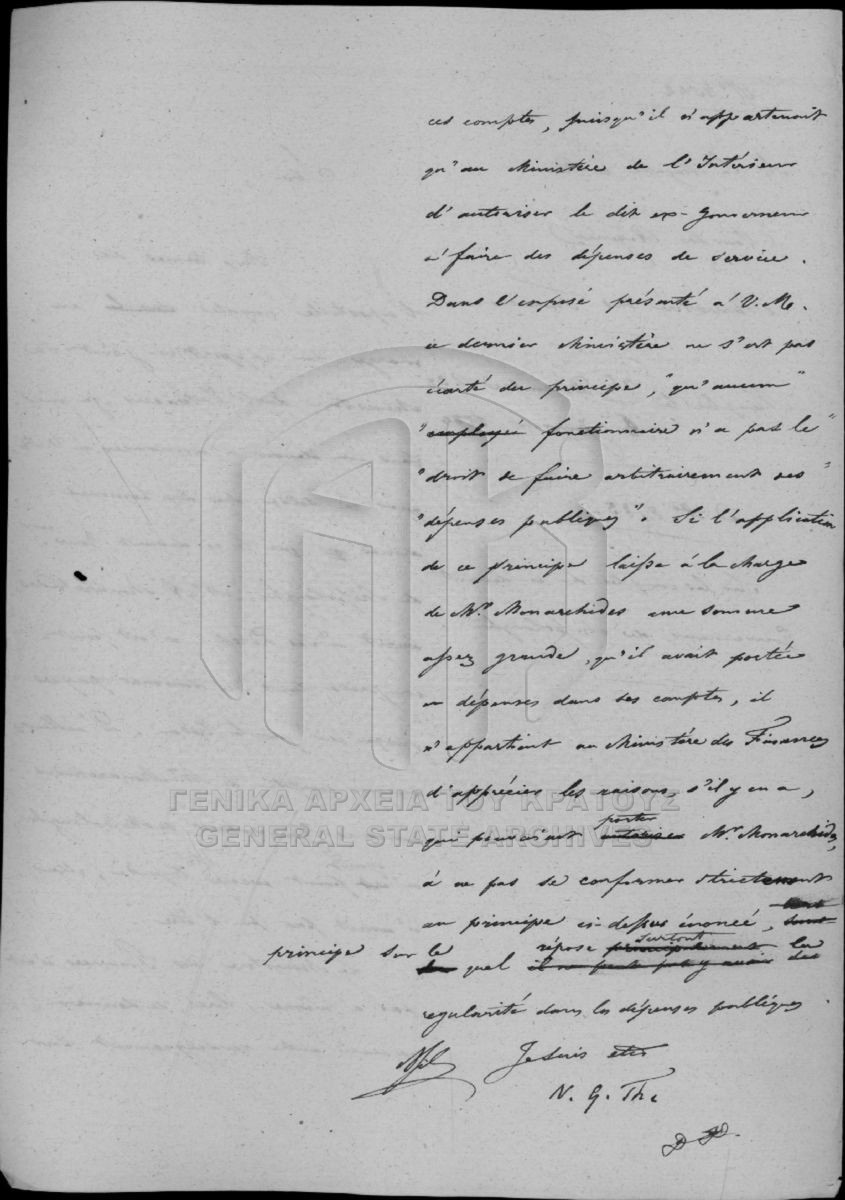 ces comptes, puisqu'il n'appartenait
qu'au Ministère de l'Intérieur
d'autoriser le dit ex-Gouverneur
à faire des dépenses de service.
Dans l'exposé présenté à V. M.
ce dernier Ministère ne s'est pas
écarté du principe, "qu'aucun"
"employé fonctionnaire n'a pas le"
"droit de faire arbitrairement des"
"dépenses publiques". Si l'application
de ce principe laisse à la charge
de Mr. Monarchides une somme
assez grande, qu'il avait portée
en dépenses dans ses comptes, il
n'appartient au Ministère des Finances
d'apprécier les raisons, s'il y en a,
ΓΕΝΙΚΑ ΑΡΧΕΙΑ ΤΟΥ ΚΡΑΤΟΥΣ
GENERAL STATE ARCHIVES
porter
que pouvaient autoriser Mr. Monarchides,
à ne pas se conformer strictement
au principe ci-dessus énoncé,
surtout
principe sur le quel répose principalement la
il ne peut pas y avoir de
regularité dans les dépenses publiques.
Je suis etc
N. G. Th.